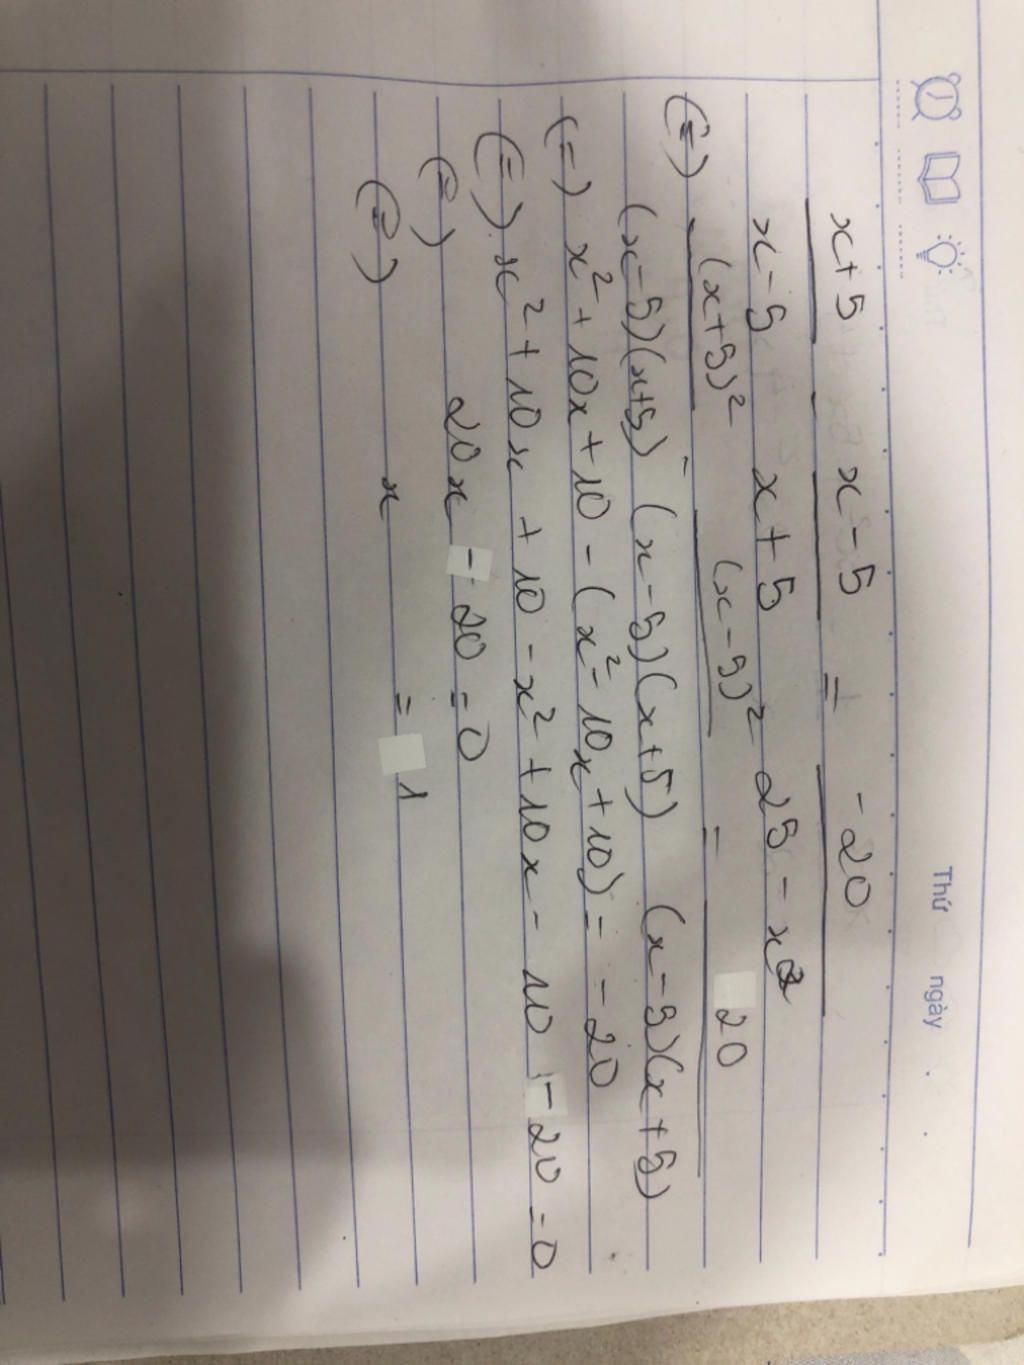 Thứ ngày
x+5 - x-5 = -20
x-5 x+5 25-x²
(=) (x+5)² - (x-5)² = 20
(x-5)(x+5) (x-5)(x+5) (x-5)(x+5)
(=) x²+10x+10-(x²-10x+10)=-20
(=) x²+10x+10-x²+10x-10-20=0
(=) 20x-20=0
(=) x = 1